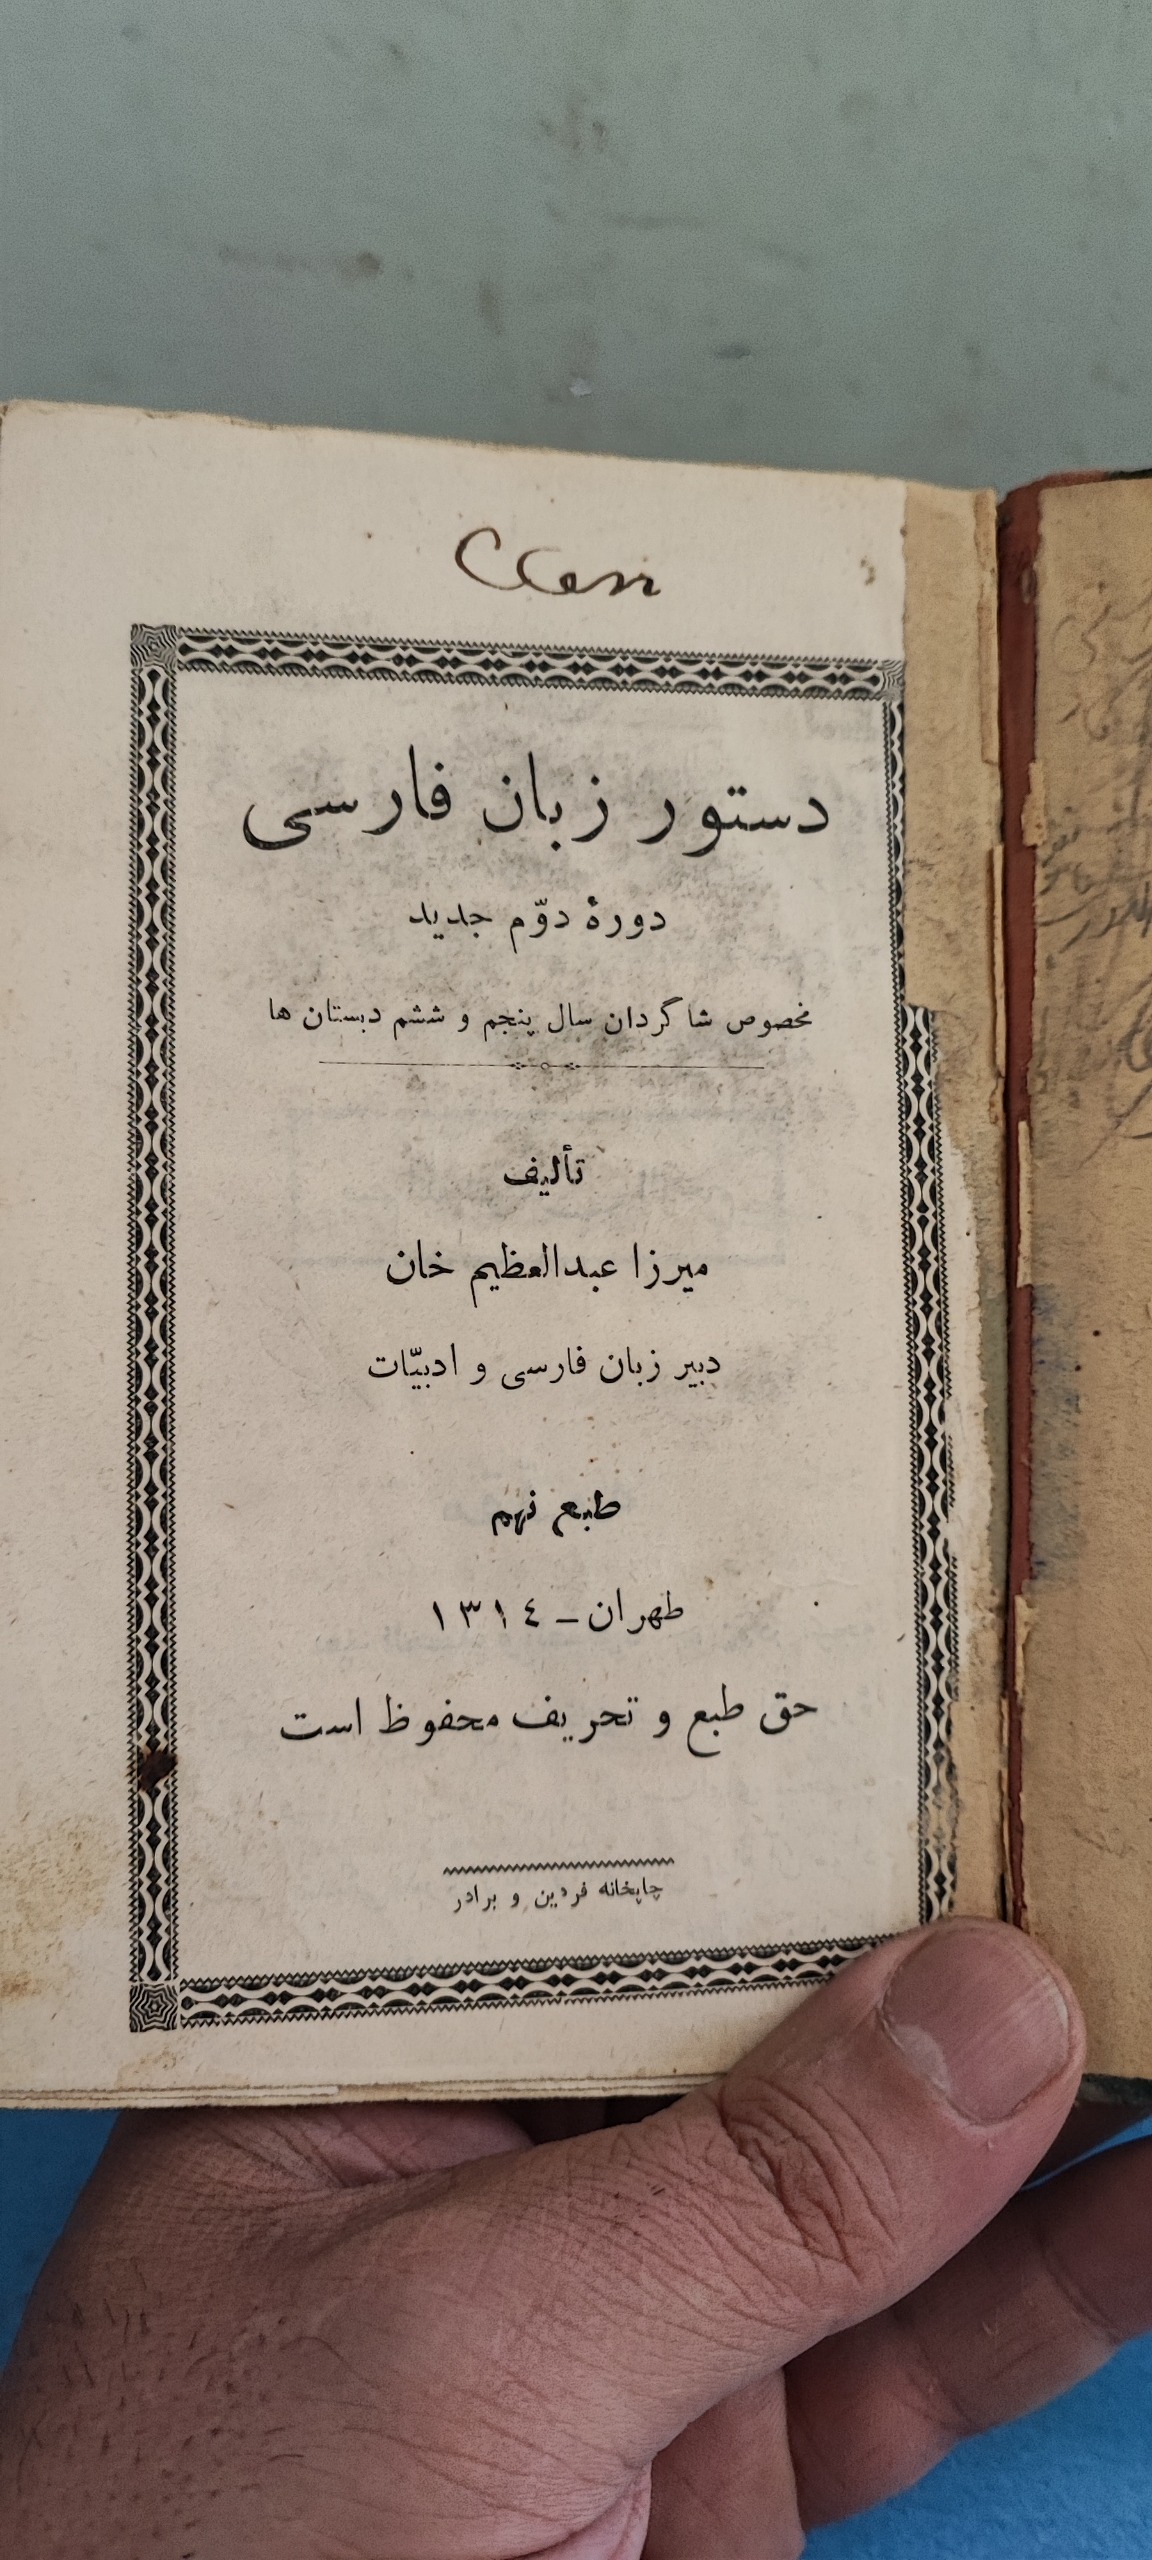 دستور زبان فارسی
دورهٔ دوّم جدید
مخصوص شاگردان سال پنجم و ششم دبستان ها
تألیف
میرزا عبدالعظیم خان
دبیر زبان فارسی و ادبیّات
طبع نهم
طهران ـ ١٣١٤
حق طبع و تحریف محفوظ است
چاپخانه فردین و برادر